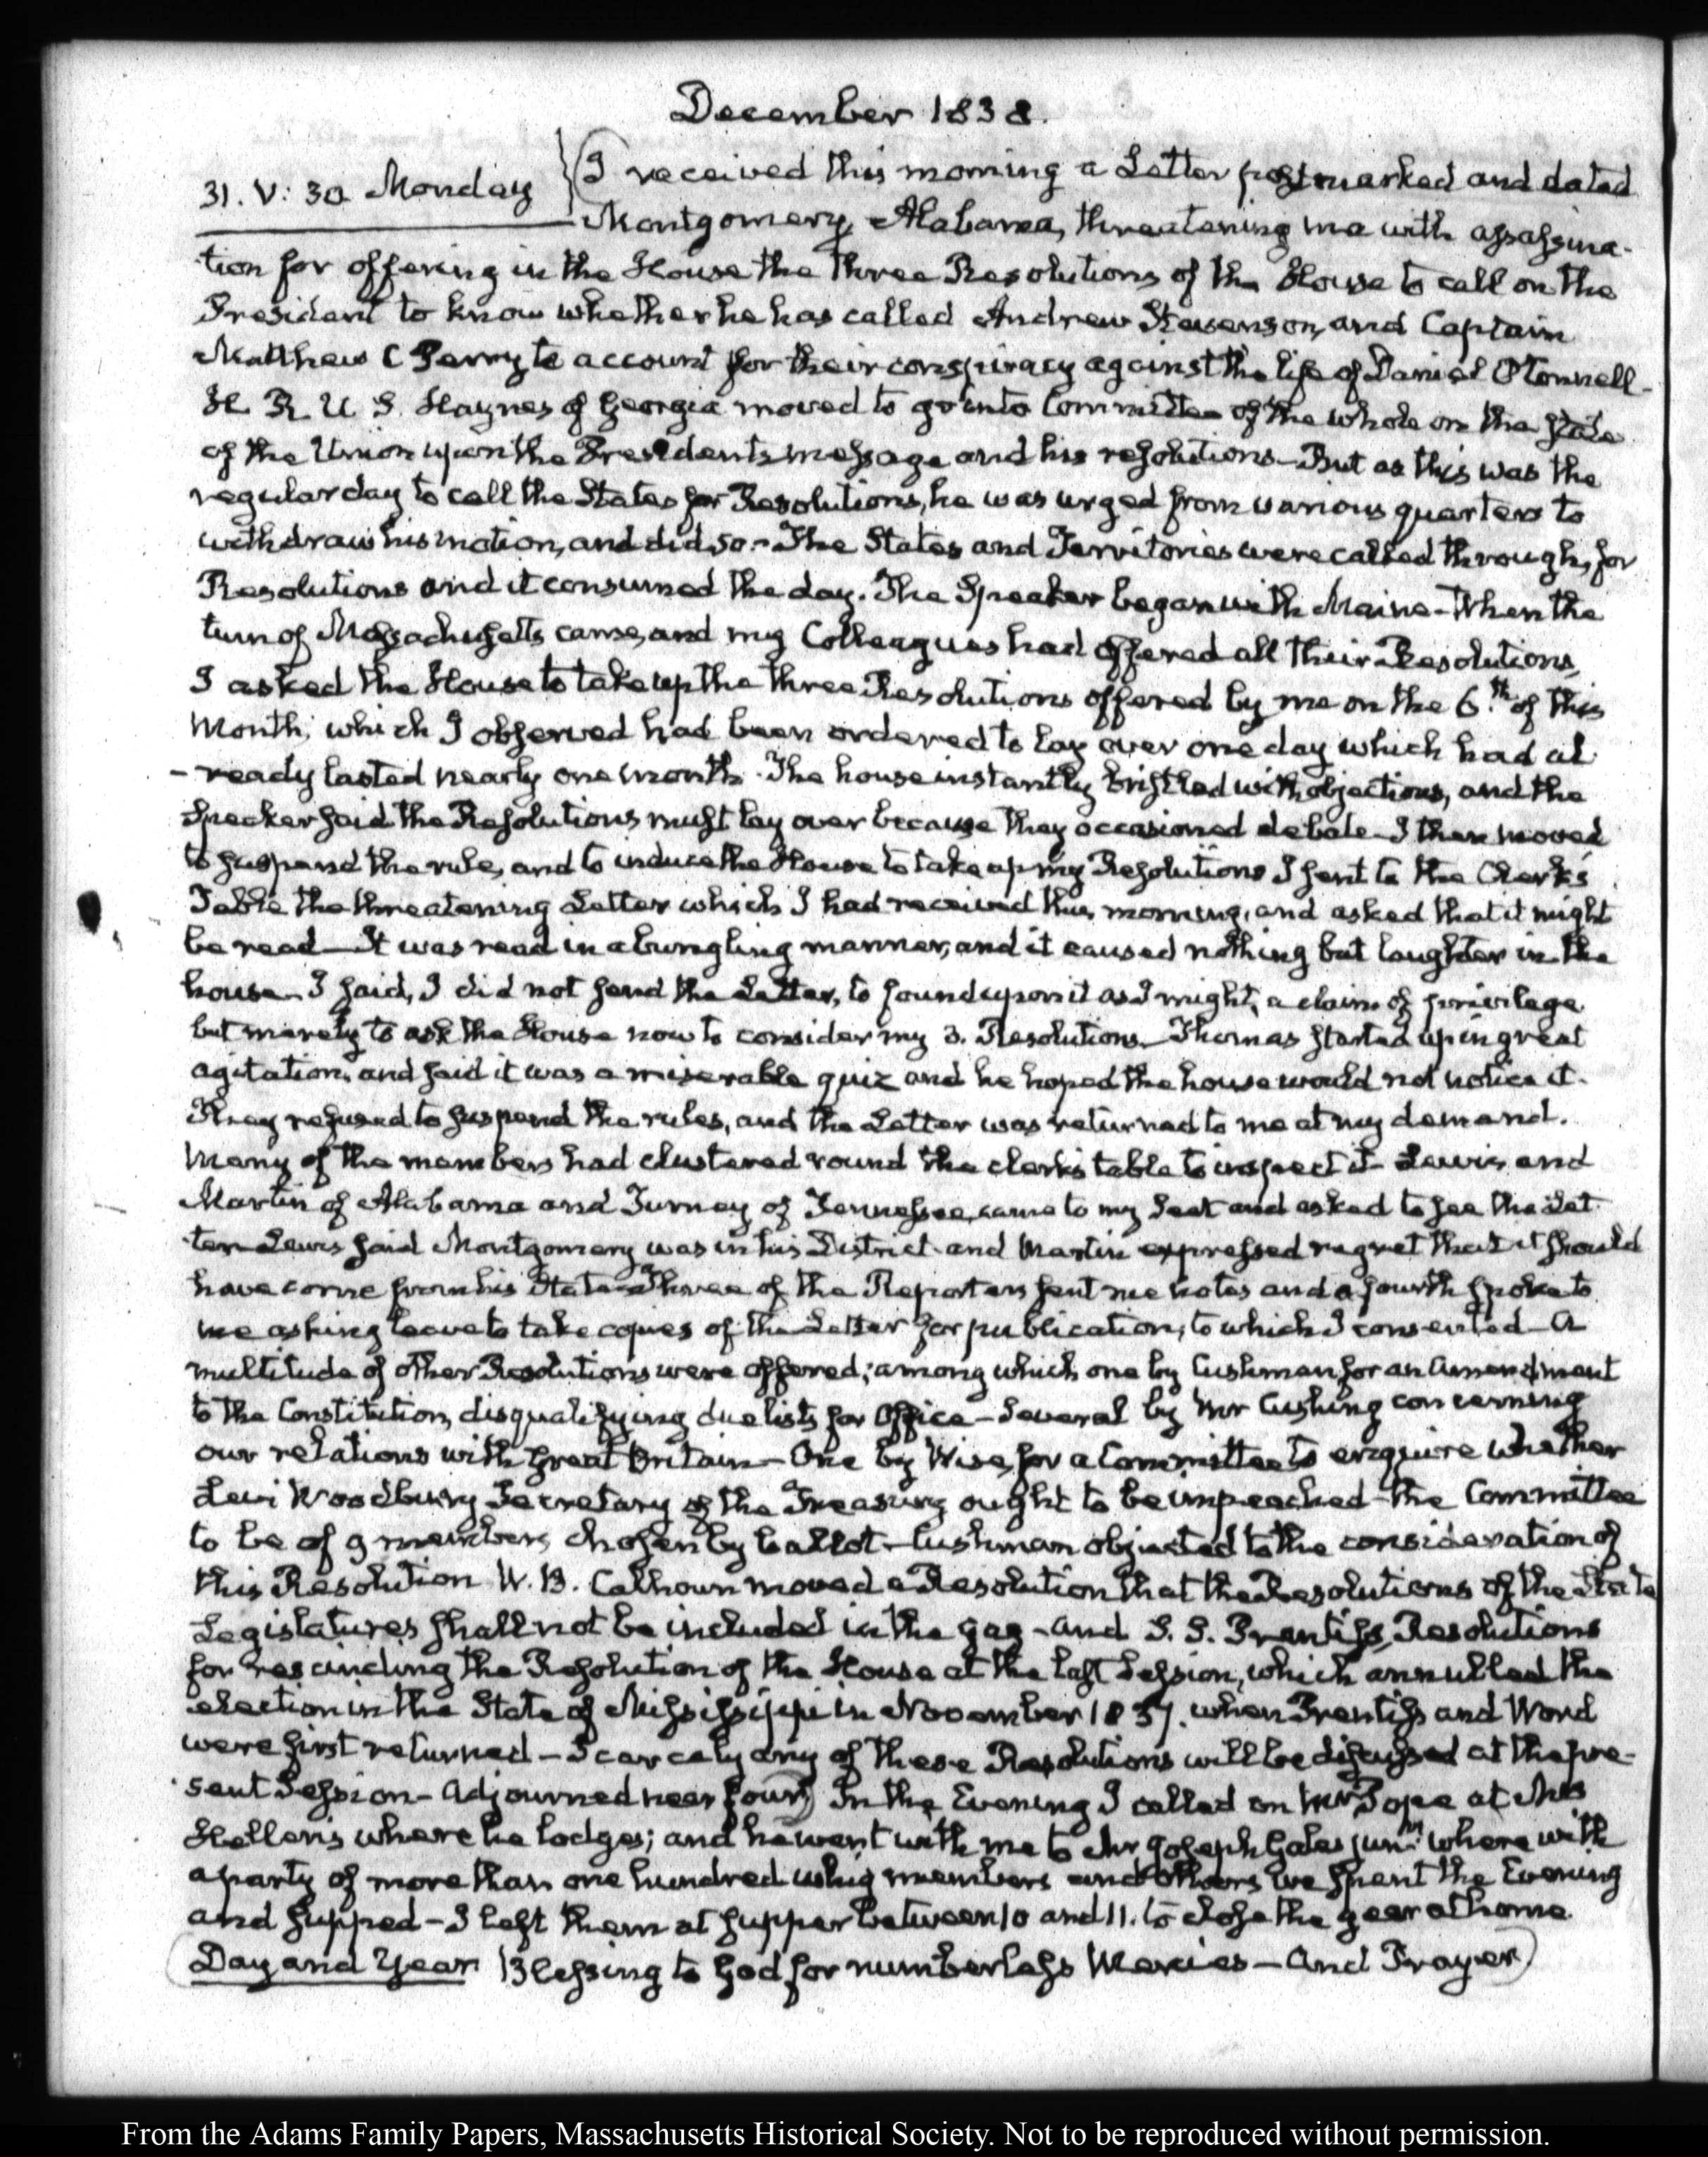 December 1838.
31. V: 30. Monday
I received this morning a Letter postmarked and dated
Montgomery, Alabama, threatening me with assassina-
tion for offering in the House the three Resolutions of the House to call on the
President to know whether he has called Andrew Stevenson, and Captain
Matthew C Perry to account for their conspiracy against the life of Daniel O'Connell-
H. R. U. S. Haynes of Georgia moved to go into Committee of the whole on the State
of the Union upon the Presidents message and his resolutions—But as this was the
regular day to call the States for Resolutions, he was urged from various quarters to
withdraw his motion, and did so.—The States and Territories were called through, for
Resolutions and it consumed the day. The Speaker began with Maine—When the
turn of Massachusetts came, and my Colleagues had offered all their Resolutions,
I asked the House to take up the three Resolutions offered by me on the 6.th of this
Month; which I observed had been ordered to lay over one day which had al
-ready lasted nearly one month. The house instantly bristled with objections, and the
Speaker said the Resolutions must lay over because they occasioned debate—I then moved
to suspend the rule, and to induce the House to take up my Resolutions I sent to the Clerk's
Table the threatening Letter which I had received this morning, and asked that it might
be read—It was read in a bungling manner, and it caused nothing but laughter in the
house—I said, I did not send the Letter, to found upon it as I might, a claim of privilege
but merely to ask the House now to consider my 3. Resolutions—Thomas started up in great
agitation, and said it was a miserable quiz and he hoped the house would not notice it.
They refused to suspend the rules, and the Letter was returned to me at my demand.
Many of the members had clustered round the clerks table to inspect it—Lewis, and
Martin of Alabama and Turney of Tennessee, came to my Seat and asked to see the Let
-ter—Lewis said Montgomery was in his District—and Martin expressed regret that it should
have come from his State—Three of the Reporters sent me notes and a fourth spoke to
me asking leave to take copies of the Letter for publication, to which I consented—A
multitude of other Resolutions were offered; among which one by Cushman for an Amendment
to the Constitution, disqualifying duelists for Office—Several by Mr Cushing concerning
our relations with Great Britain—One by Wise, for a Committee to enquire whether
Levi Woodbury Secretary of the Treasury ought to be impeached—the Committee
to be of 9 members, chosen by ballot—Cushman objected to the consideration of
this Resolution W. B. Calhoun moved a Resolution that the Resolutions of the State
Legislatures shall not be included in the gag—and S. S. Prentiss, Resolutions
for rescinding the Resolution of the House at the last Session, which annulled the
election in the State of Mississippi in November 1837. when Prentiss and Word
were first returned—Scarcely any of these Resolutions will be discussed at the pre-
sent Session—Adjourned near four) In the Evening I called on Mr Pope at Mrs
Hellen's where he lodges; and he went with me to Mr Joseph Gales junr. where with
a party of more than one hundred whig members and others we spent the Evening
and supped—I left them at supper between 10 and 11. to close the year at home.
(Day and Year. Blessing to God for numberless Mercies—And Prayer)
From the Adams Family Papers, Massachusetts Historical Society. Not to be reproduced without permission.